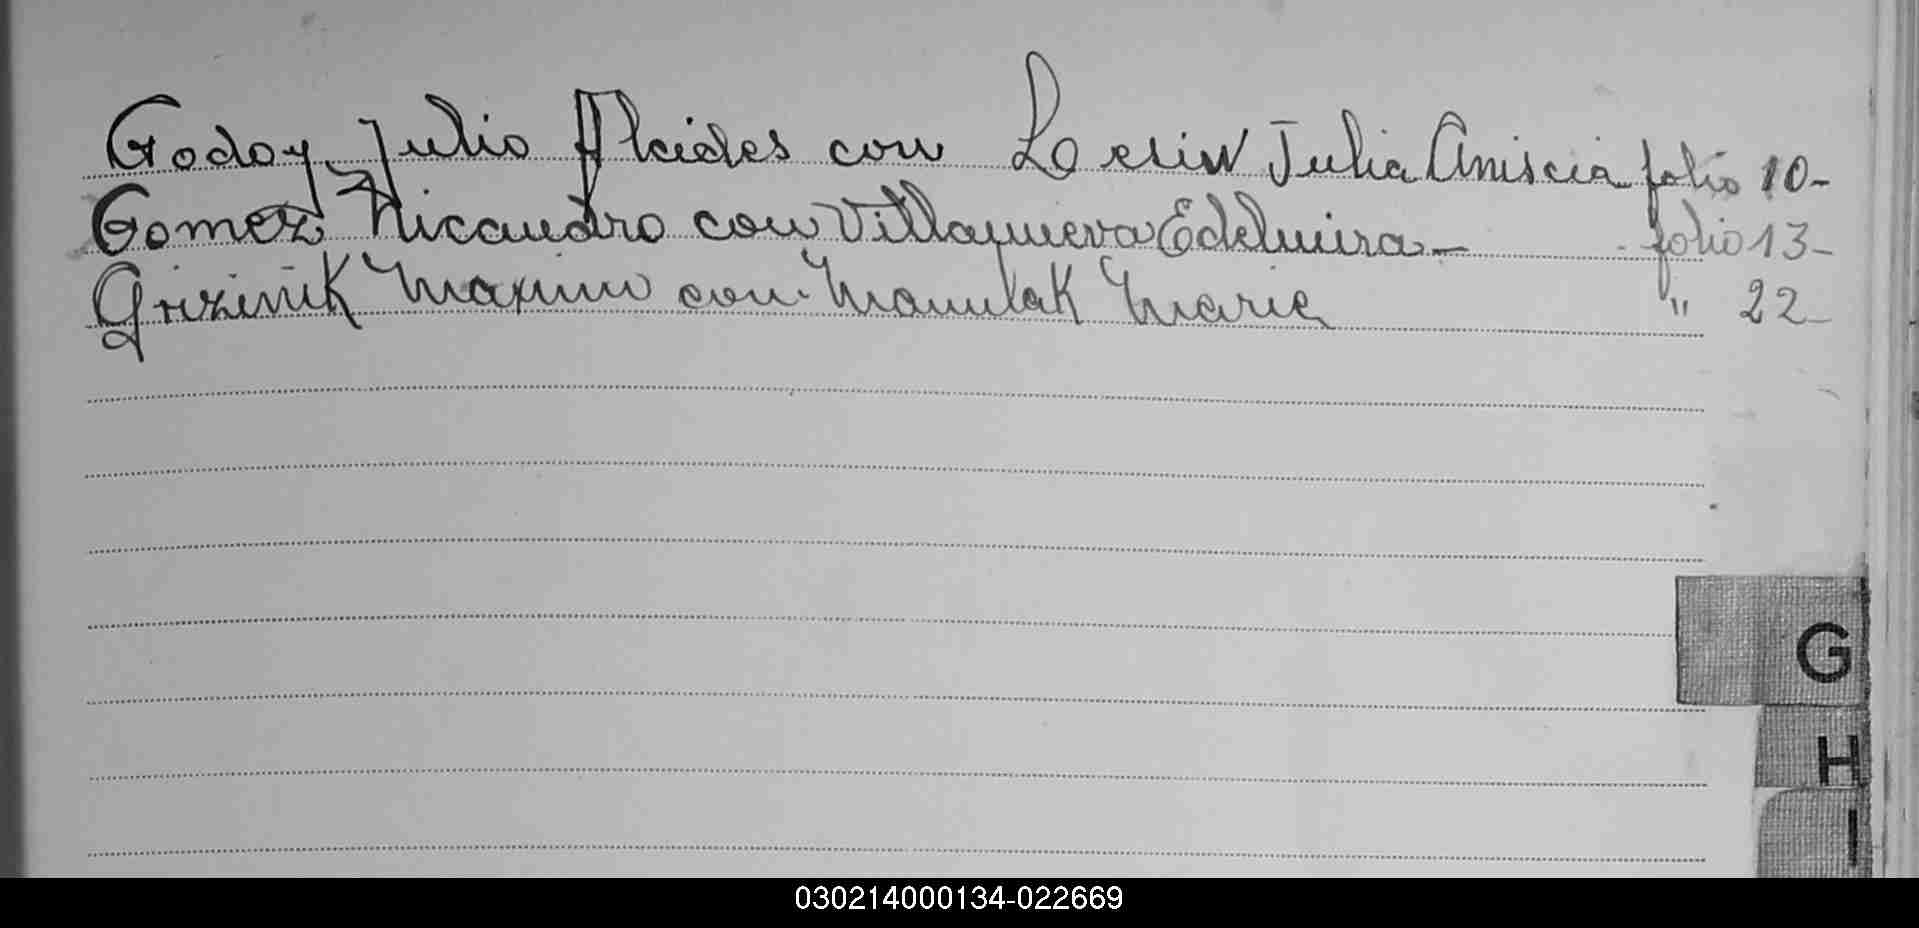 Godoy Julio Alcides con Loesin Julia Aniscia folio 10-
Gomez Nicandro con Villanueva Edelmira- folio 13-
Grizinik Maximo con Manulak Maria " 22-
G
H
I
030214000134-022669